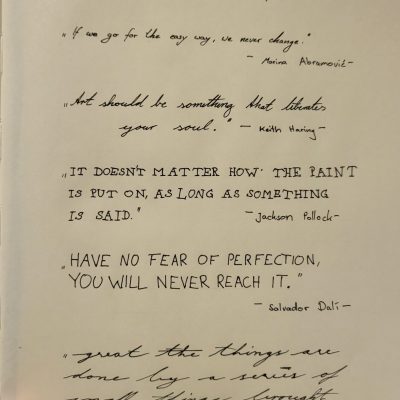 „If we go for the easy way, we never change."
- Marina Abramović -
„Art should be something that liberates
your soul." - Keith Haring -
„IT DOESN'T MATTER HOW THE PAINT
IS PUT ON, AS LONG AS SOMETHING
IS SAID." - Jackson Pollock -
„HAVE NO FEAR OF PERFECTION,
YOU WILL NEVER REACH IT."
- Salvador Dalí -
„great the things are
done by a series of
small things brought